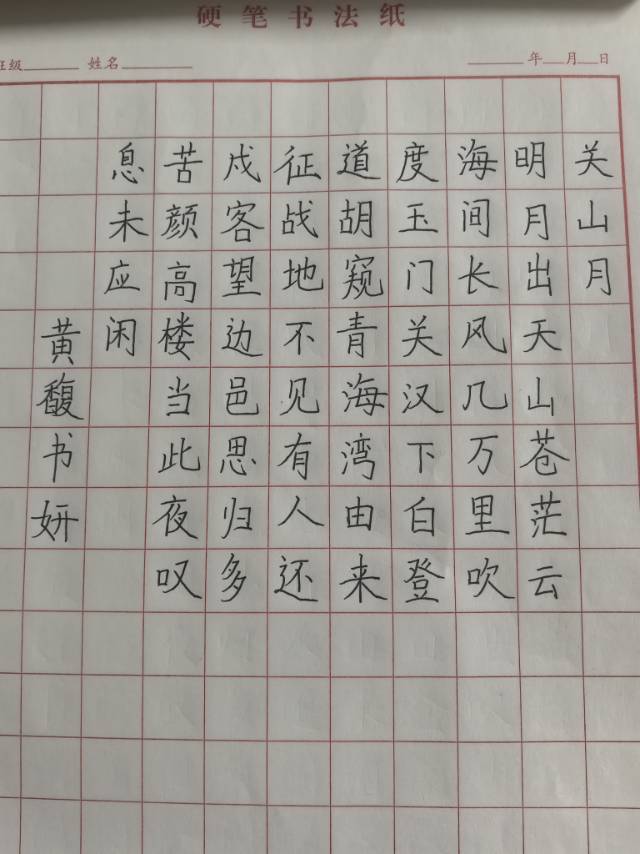 硬笔书法纸
班级 姓名 年 月 日
关山月
明月出天山苍茫云
海间长风几万里吹
度玉门关汉下白登
道胡窥青海湾由来
征战地不见有人还
戍客望边邑思归多
苦颜高楼当此夜叹
息未应闲
黄馥书妍